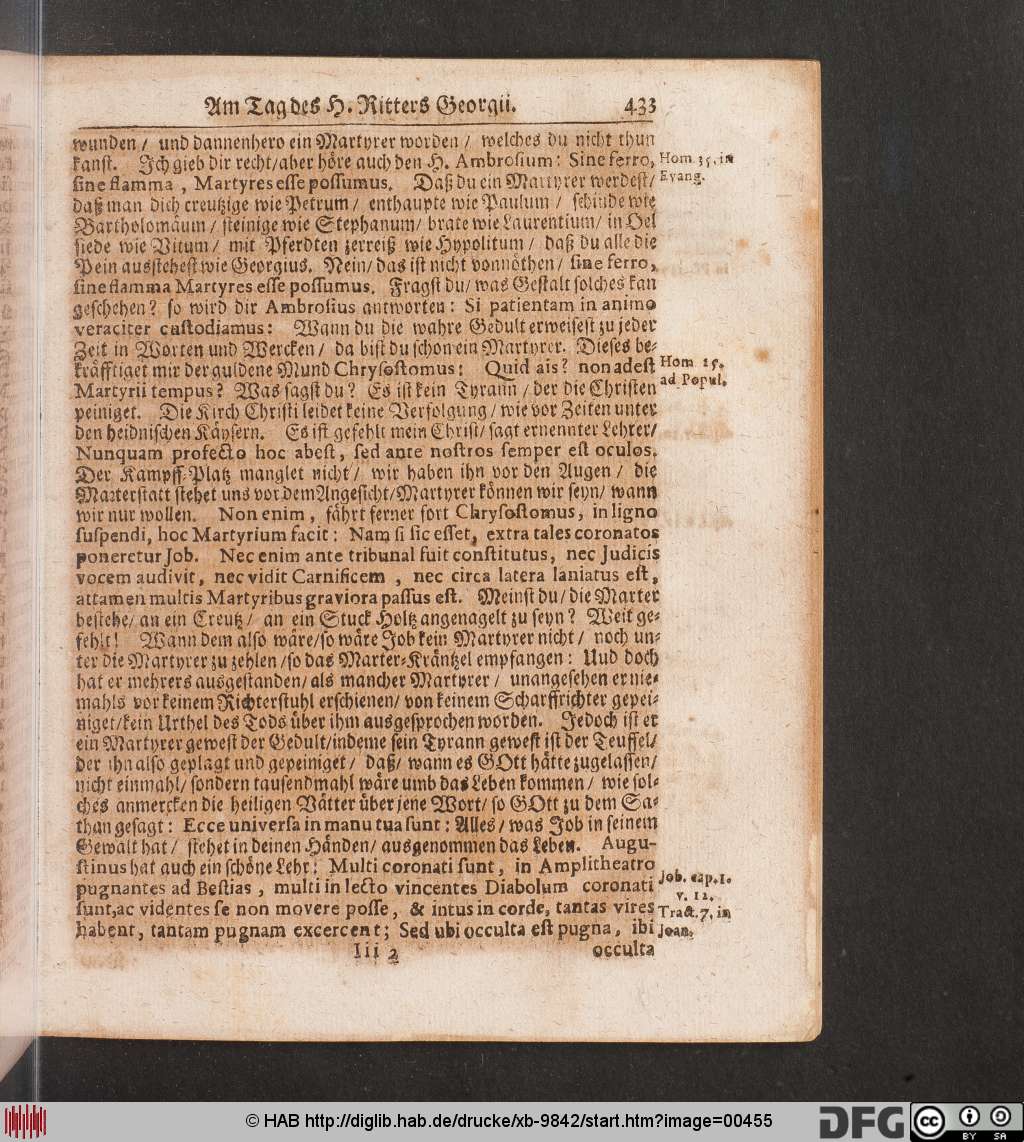 Am Tag des H. Ritters Georgii. 433
wunden / und dannenhero ein Martyrer worden / welches du nicht thun
kanst. Ich gieb dir recht/aber höre auch den H. Ambrosium: Sine ferro, Hom. 35. in
sine flamma, Martyres esse possumus. Daß du ein Martyrer werdest/ Evang.
daß man dich creutzige wie Petrum / enthaupte wie Paulum / schinde wie
Bartholomäum / steinige wie Stephanum / brate wie Laurentium / in Oel
siede wie Vitum / mit Pferdten zerreiß wie Hypolitum / daß du alle die
Pein ausstehest wie Georgius. Nein/ das ist nicht vonnöthen / sine ferro,
sine flamma Martyres esse possumus. Fragst du/ was Gestalt solches kan
geschehen? so wird dir Ambrosius antworten: Si patientam in animo
veraciter custodiamus: Wann du die wahre Gedult erweisest zu jeder
Zeit in Worten und Wercken / da bist du schon ein Martyrer. Dieses be-
kräfftiget mir der guldene Mund Chrysostomus: Quid ais? non adest Hom. 15.
Martyrii tempus? Was sagst du? Es ist kein Tyrann / der die Christen ad Popul.
peiniget. Die Kirch Christi leidet keine Verfolgung / wie vor Zeiten unter
den heidnischen Käysern. Es ist gefehlt mein Christ/ sagt ernennter Lehrer/
Nunquam profecto hoc abest, sed ante nostros semper est oculos.
Der Kampff-Platz manglet nicht / wir haben ihn vor den Augen / die
Marterstatt stehet uns vor dem Angesicht/Martyrer können wir seyn/ wann
wir nur wollen. Non enim, fährt ferner fort Chrysostomus, in ligno
suspendi, hoc Martyrium facit: Nam si sic esset, extra tales coronatos
poneretur Job. Nec enim ante tribunal fuit constitutus, nec Judicis
vocem audivit, nec vidit Carnificem, nec circa latera laniatus est,
attamen multis Martyribus graviora passus est. Meinst du/ die Marter
bestehe/ an ein Creutz / an ein Stuck Holtz angenagelt zu seyn? Weit ge-
fehlt! Wann dem also wäre/so wäre Job kein Martyrer nicht / noch un-
ter die Martyrer zu zehlen /so das Marter-Kräntzel empfangen: Uud doch
hat er mehrers ausgestanden/ als mancher Martyrer / unangesehen er nie-
mahls vor keinem Richterstuhl erschienen/ von keinem Scharffrichter gepei-
niget/kein Urthel des Tods über ihm ausgesprochen worden. Jedoch ist er
ein Martyrer gewest der Gedult/indeme sein Tyrann gewest ist der Teuffel/
der ihn also geplagt und gepeiniget / daß/ wann es GOtt hätte zugelassen/
nicht einmahl/ sondern tausendmahl wäre umb das Leben kommen / wie sol-
ches anmercken die heiligen Vätter über jene Wort/ so GOtt zu dem Sa-
than gesagt: Ecce universa in manu tua sunt: Alles/ was Job in seinem
Gewalt hat / stehet in deinen Händen/ ausgenommen das Leben. Augu-
stinus hat auch ein schöne Lehr: Multi coronati sunt, in Amplitheatro
pugnantes ad Bestias, multi in lecto vincentes Diabolum coronati Job. cap. 1.
v. 12.
sunt, ac videntes se non movere posse, & intus in corde, tantas vires Tract. 7. in
habent, tantam pugnam excercent; Sed ubi occulta est pugna, ibi Joan.
Iii 2 occulta
© HAB http://diglib.hab.de/drucke/xb-9842/start.htm?image=00455
DFG cc BY SA